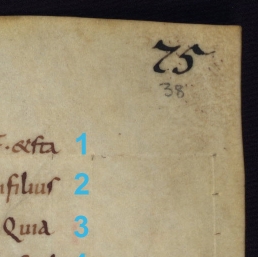 75
38
1
filius 2
Quia 3